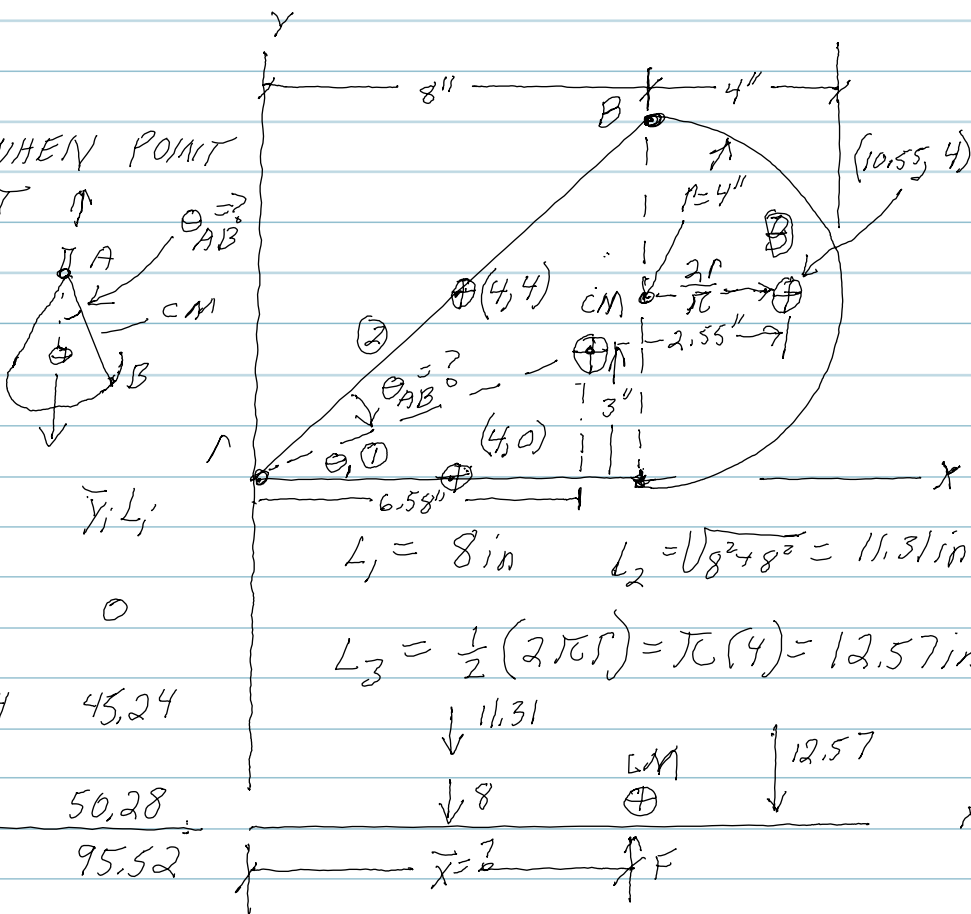 Y
8" 4"
B
WHEN POINT
(10.55, 4)
r=4"
θAB=?
A
B
2r/π
(4,4)
CM
CM
2.55"
②
B
θAB=?
3"
(4,0)
θ, ①
X
6.58"
ȳᵢLᵢ
L₁ = 8 in L₂ = √8²+8² = 11.31 in
0
L₃ = ½(2πr) = π(4) = 12.57 in
45.24
11.31
12.57
CM
8
50.28
95.52
x̄=? F